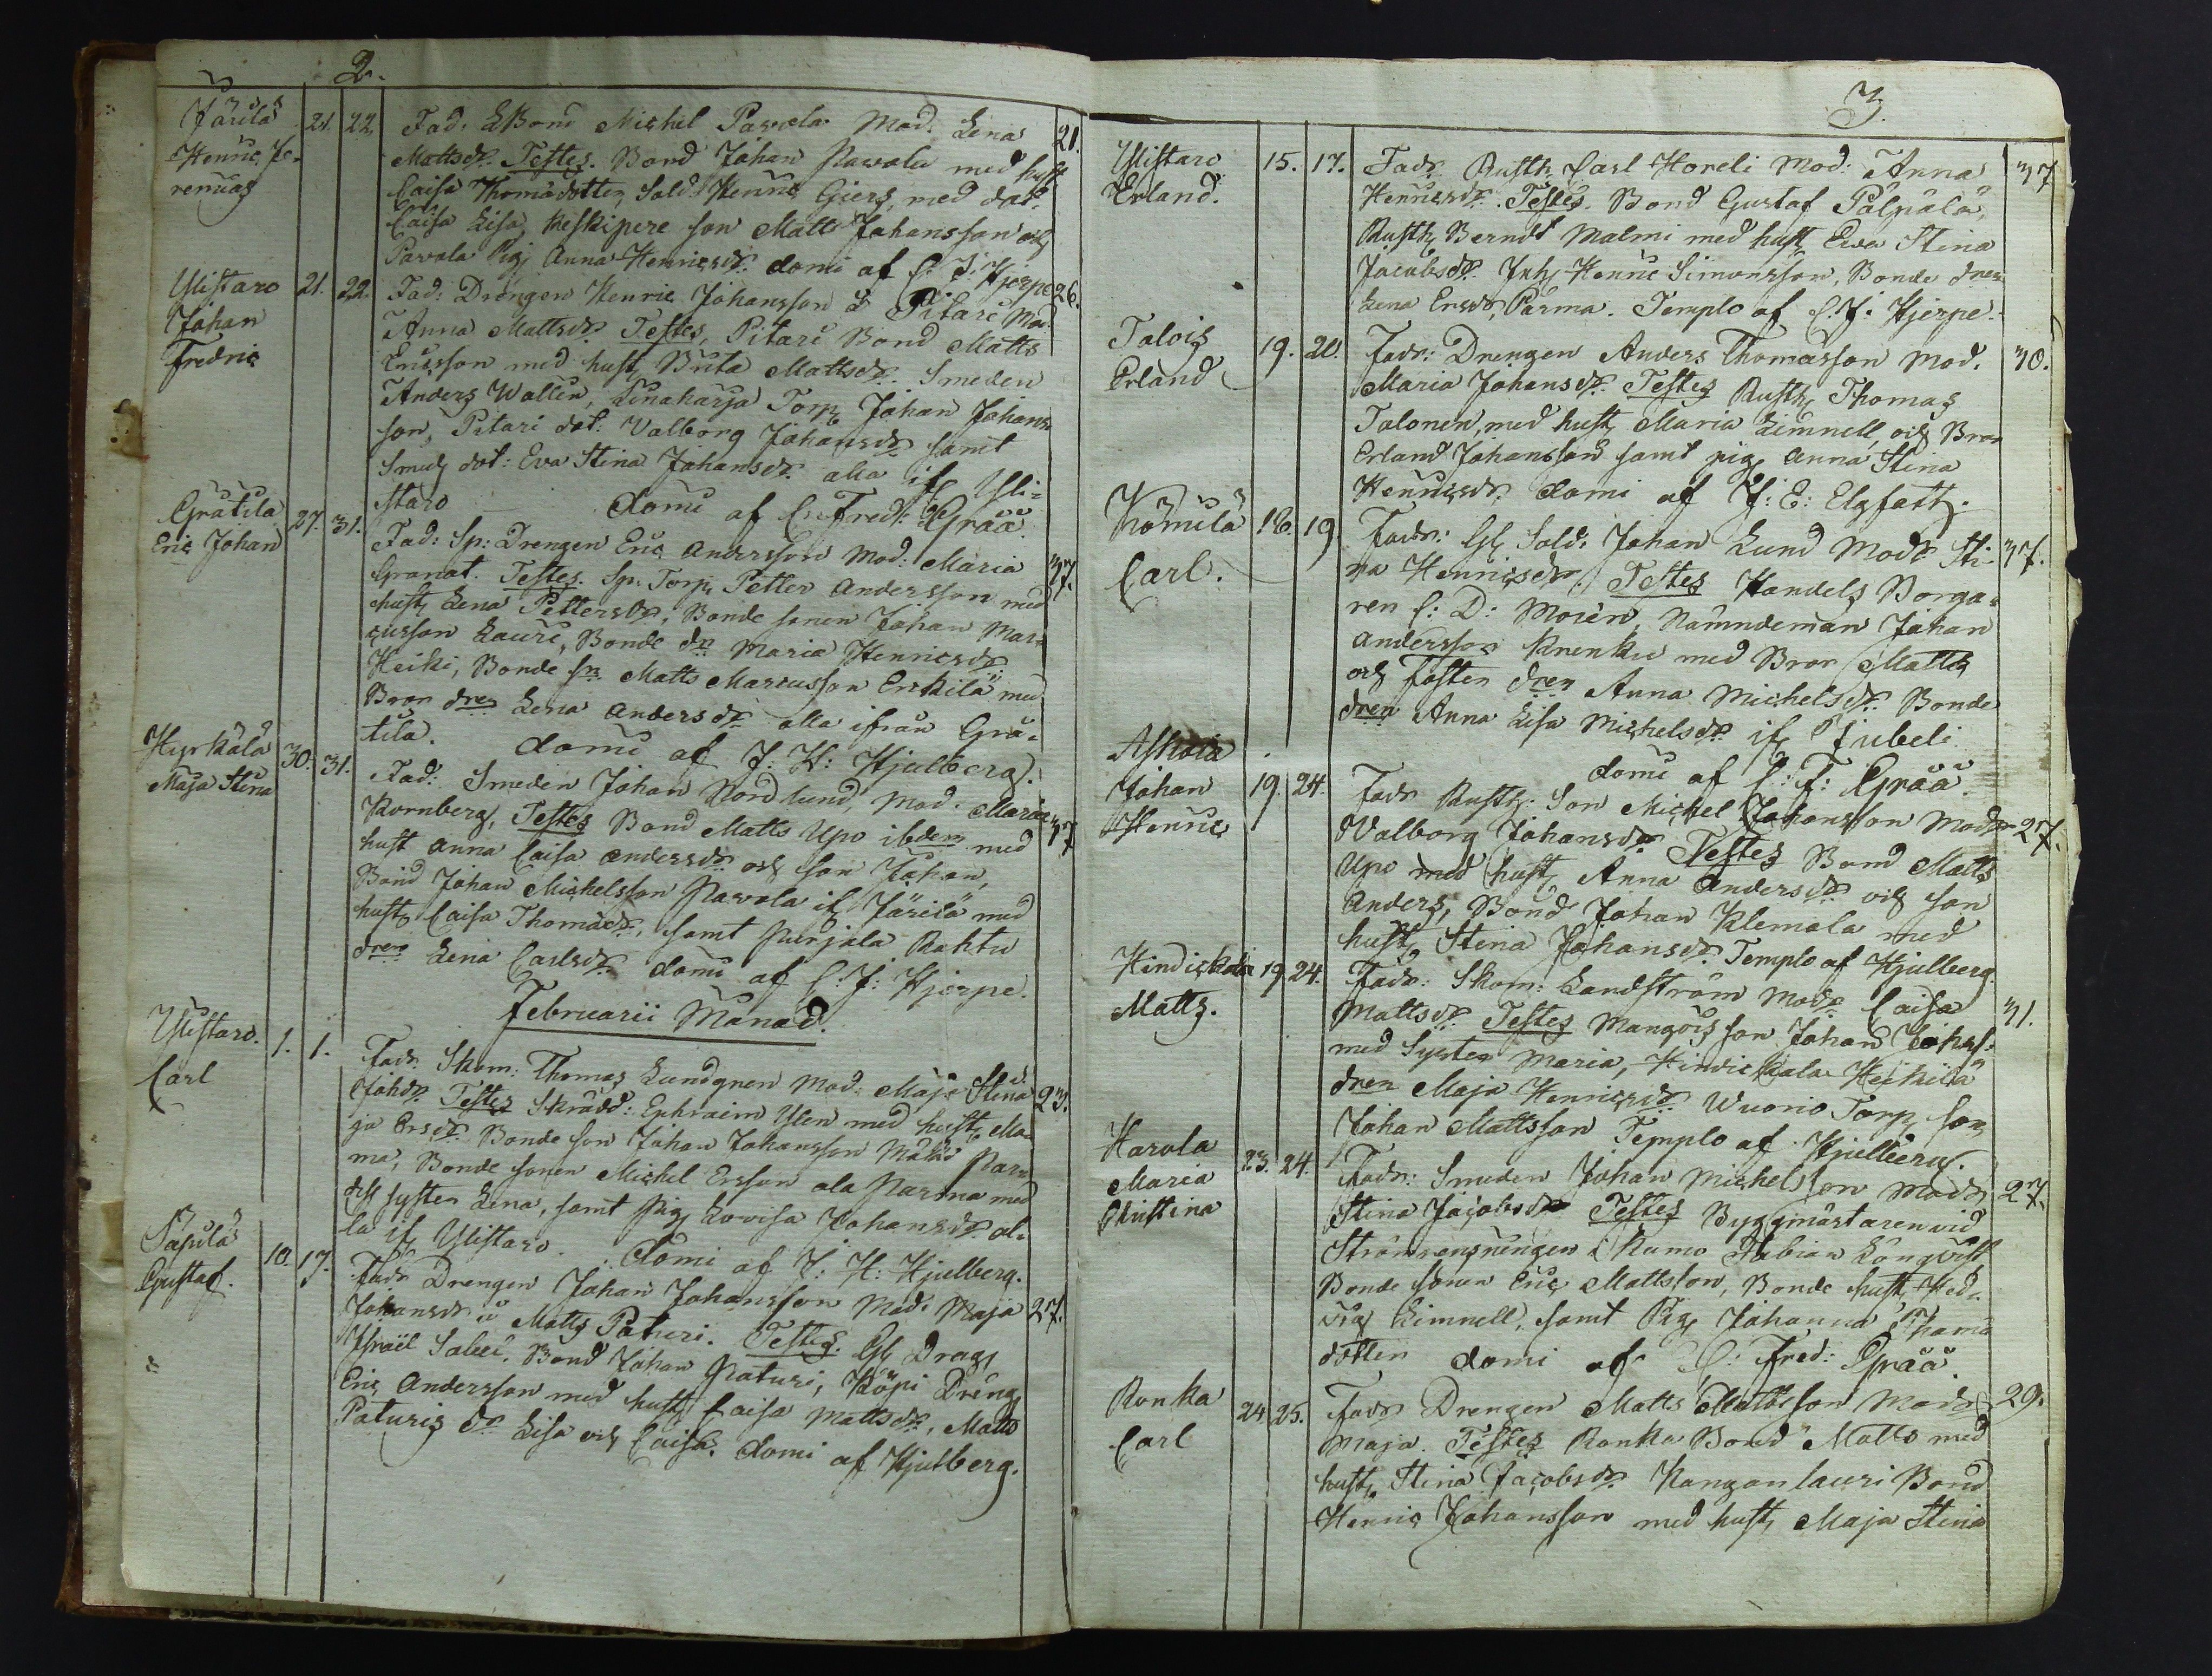 2.
Järilä 21. 22. Fad. LBond Michel Pavola Mod. Lena 21.
Henric Je- Mattsdr. Testes. Bond Johan Pavola med hust
remias Caisa Thomädotter, Sold. Henric Giers, med dot.
Caisa Lisa, Keskipere son Matts Johansson och
Pavola Pig Anna Henricsdr. domi af C. J. Hjerpe
Ylistaro 21. 22. Fad: Drengen Henric Johansson i Pitari Mod. 26.
Johan Anna Mattsdr. Testes, Pitari Bond Matts
Fredric Ericsson med hust, Brita Mattsdr. Smeden
Anders Wallin, Linaharja Torp. Johan Johans
son, Pitari dot: Valborg Johansdr. samt
Smeds dot: Eva Stina Johansdr. alla if Yli=
staro domi af C: Fred: Grää.
Gratila 27. 31. Fad: Sp: Drengen Eric Andersson Mod: Maria 37.
Eric Johan Granat. Testes. Sp. Torp. Petter Andersson med
hust, Lena Pettersdr, Bonde sonen Johan Mar=
cusson Lauri, Bonde dr Maria Henricsdr.
Heiki, Bonde sn Matts Marcusson Erkilä med
Bror dren Lena Andersdr alla ifrån Gra=
tila. domi af J: H: Hjulberg.
Hyrkälä 30. 31. Fad: Smeden Johan Nordlund, Mod. Maria 37
Maja Stina Kornberg, Testes Bond Matts Upo ibdem med
hust Anna Caisa Andersdr och son Johan,
Bond Johan Michelsson Pavola if Järilä med
hust, Caisa Thomädr, samt Purjala Rahtu
dren Lena Carlsdr domi af C: J: Hjerpe.
Februarii Månad.
Ylistaro. 1. 1. Fadr. Skom: Thomas Lundgren Mod: Maja Stina 23.
Carl Johdr. Testes Skrädd: Ephraim Ylen med hust, Ma-
ja Ersdr. Bonde son Johan Johansson Par-
ma, Bonde sonen Michel Ersson ala Parma med
dess syster Lena, samt Pig Lovisa Johansdr. al-
la if Ylistaro. domi af J: H: Hjulberg.
Papula 10. 17. Fadr Drengen Johan Johansson Mod. Maja 27.
Gustaf. Johansdr i Matts Paturi. Testes. Gl Drag
Israël Saleé. Bond Johan Paturi, Köpi Dreng
Eric Andersson med hust, Caisa Mattsdr, Matts
Paturis dr Lisa och Caisa. domi af Hjulberg.
3.
Ylistaro 15. 17. Fadr. Rusth, Carl Horeli Mod: Anna 37
Erland. Henricsdr. Testes. Bond Gustaf Pälpälä,
Rusth, Berndt Malmi med hust, Eva Stina
Jacobsdr. Inh, Henric Simonsson, Bonde dren
Lena Ersdr, Parma. Templo af C. J. Hjerpe.
Talois 19. 20. Fadr: Drengen Anders Thomasson Mod. 30.
Erland Maria Johansdr. Testes Rusth, Thomas
Talonen, med hust, Maria Limnell, och Bror
Erland Johansson samt pig Anna Stina
Henricsdr. domi af J: E: Elgfoth.
Kömilä 18. 19 Fadr: Gl, Sold: Johan Lund Modr Sti- 37.
Carl. na Henricsdr. Testes Handels Borga-
ren C: D: Morén, Nämndeman Johan
Andersson Krenku med Bror Matts
och Foster dren Anna Michelsdr. Bonde
dren Anna Lisa Michelsdr. if Tjubeli.
domi af C: F: Grää.
Askola
Johan 19. 24. Fadr Rusth: Son Michel Johansson Modr 27.
Henric Valborg Johansdr. Testes Bond Matts
Upo med hust, Anna Andersdr och son
Anders, Bond Johan Klemola med
hust, Stina Johansdr. Templo af Hjulberg.
Hindickala 19 24. Fadr: Skom: Landström Modr Caisa 31.
Matts. Mattsdr. Testes Mangois son Johan Johss:
med Syster Maria, Hindickala Heikilä
dren Maja Henricsdr. Wuorio Torp, Son
Johan Mattsson Templo af. Hjulberg.
Harola 23. 24. Fadr: Smeden Johan Michelsson Modr 27.
Maria Stina Jacobsdr Testes Byggmästaren vid
Christina Strömrensningen i Kumo Fabian Långqvist
Bonde sonen Eric Mattsson, Bonde hust, Hed-
vig Limnell, samt Pig Johanna Thomä
dotter domi af C: Fred: Grää.
Ronka 24 25. Fadr Drengen Matts Mattsson Modr 29.
Carl Maja. Testes Ronka Bond Matts med
hust, Stina Jacobsdr. Kangan lauri Bond
Henric Johansson med hust, Maja Stina